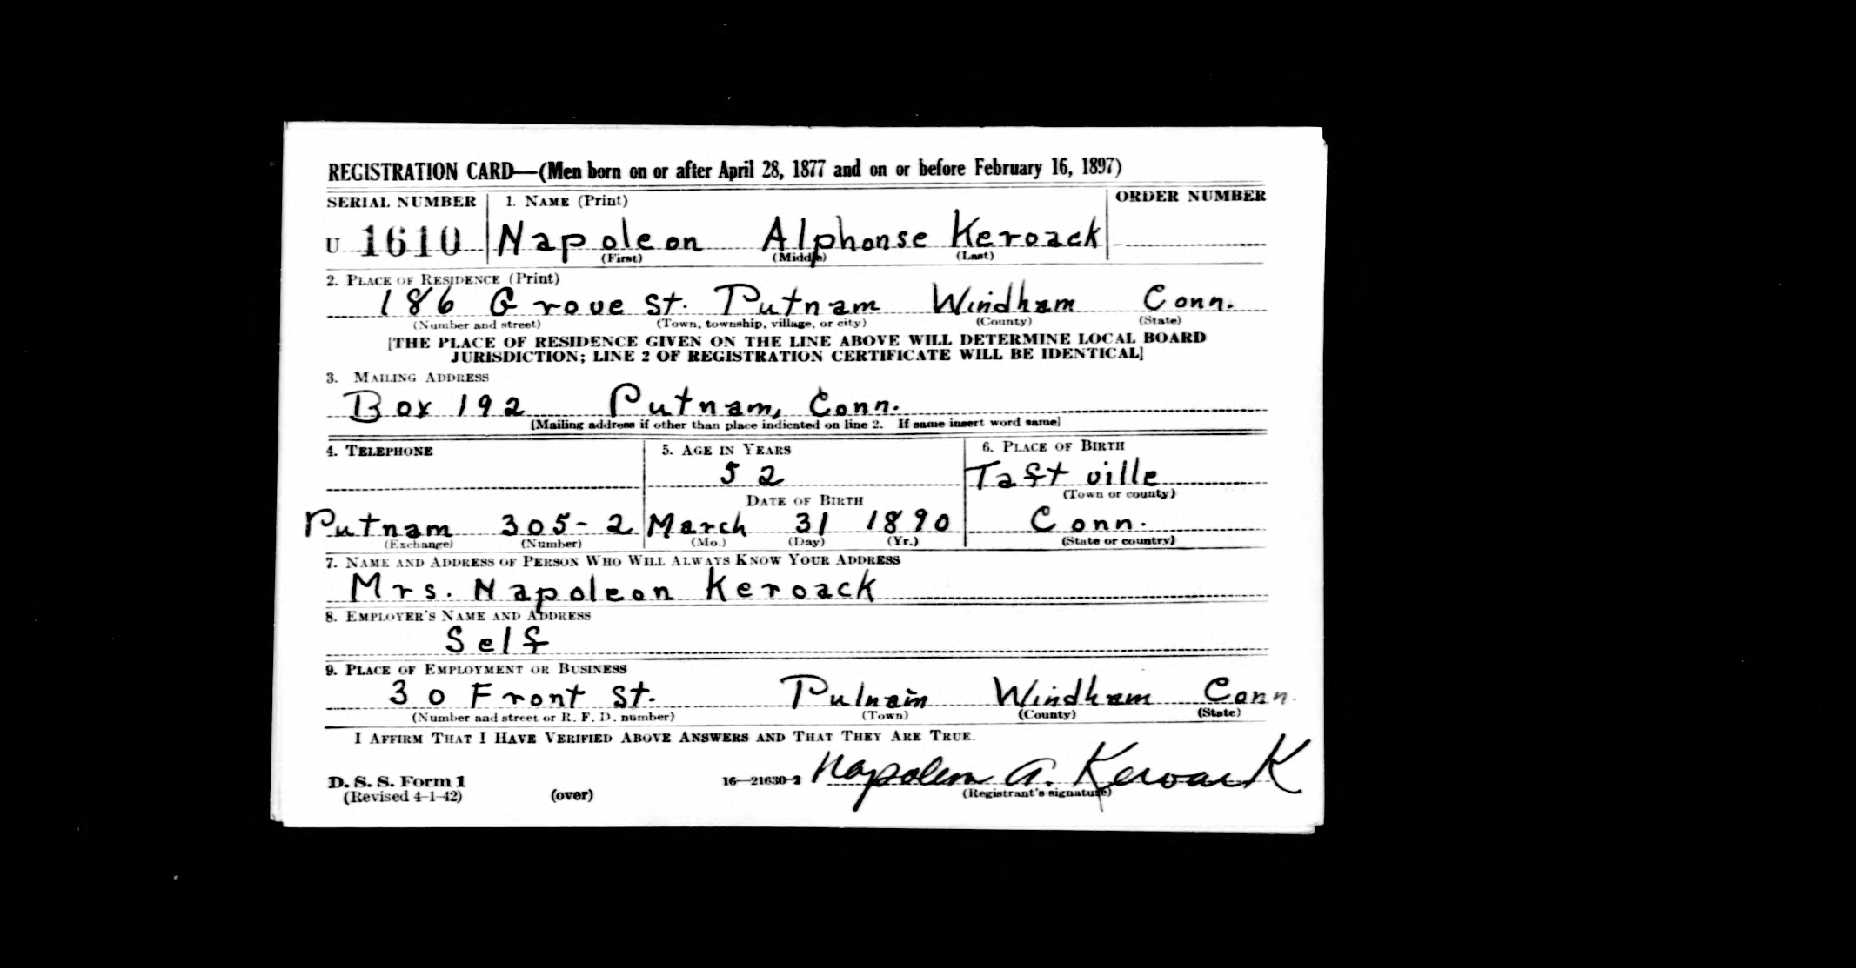 REGISTRATION CARD—(Men born on or after April 28, 1877 and on or before February 16, 1897)
SERIAL NUMBER 1. NAME (Print) ORDER NUMBER
U 1610 Napoleon Alphonse Keroack
(First) (Middle) (Last)
2. PLACE OF RESIDENCE (Print)
186 Grove St. Putnam Windham Conn.
(Number and street) (Town, township, village, or city) (County) (State)
[THE PLACE OF RESIDENCE GIVEN ON THE LINE ABOVE WILL DETERMINE LOCAL BOARD
JURISDICTION; LINE 2 OF REGISTRATION CERTIFICATE WILL BE IDENTICAL]
3. MAILING ADDRESS
Box 192 Putnam, Conn.
[Mailing address if other than place indicated on line 2. If same insert word same]
4. TELEPHONE 5. AGE IN YEARS 6. PLACE OF BIRTH
52 Taftville
DATE OF BIRTH (Town or county)
Putnam 305-2 March 31 1890 Conn.
(Exchange) (Number) (Mo.) (Day) (Yr.) (State or country)
7. NAME AND ADDRESS OF PERSON WHO WILL ALWAYS KNOW YOUR ADDRESS
Mrs. Napoleon Keroack
8. EMPLOYER'S NAME AND ADDRESS
Self
9. PLACE OF EMPLOYMENT OR BUSINESS
30 Front St. Putnam Windham Conn
(Number and street or R. F. D. number) (Town) (County) (State)
I AFFIRM THAT I HAVE VERIFIED ABOVE ANSWERS AND THAT THEY ARE TRUE.
D. S. S. Form 1 16—21630-2 Napoleon A. Keroack
(Revised 4-1-42) (over) (Registrant's signature)